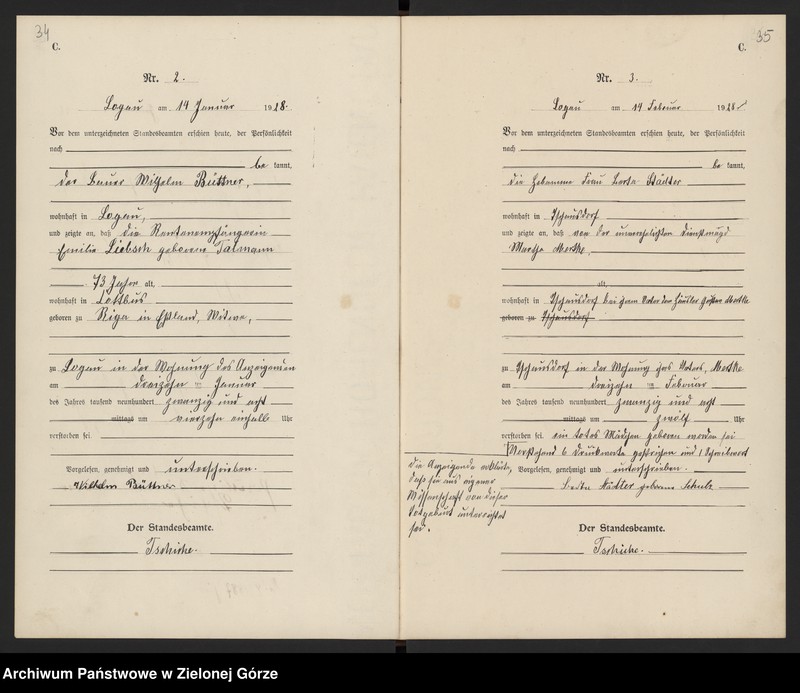 34
C.
Nr. 2.
Logau am 14 Januar 1928.
Vor dem unterzeichneten Standesbeamten erschien heute, der Persönlichkeit
nach
be kannt,
der Bauer Wilhelm Büttner,
wohnhaft in Logau,
und zeigte an, daß die Rentenempfängerin
Emilie Liebsch geborene Talmann
73 Jahre alt,
wohnhaft in Cottbus
geboren zu Riga in Estland, Witwe,
zu Logau in der Wohnung des Anzeigenden
am dreizehn ten Januar
des Jahres tausend neunhundert zwanzig und acht
mittags um vierzehn einhalb Uhr
verstorben sei
Vorgelesen, genehmigt und unterschrieben.
Wilhelm Büttner
Der Standesbeamte.
Tschiche.
35
C.
Nr. 3.
Logau am 14 Februar 1928
Vor dem unterzeichneten Standesbeamten erschien heute, der Persönlichkeit
nach
be kannt,
die Hebamme Frau Berta
wohnhaft in Tschausdorf
und zeigte an, daß von der unverehelichten Dienstmagd
Martha Merkle,
alt,
wohnhaft in Tschausdorf bei ihrem Vater dem Händler Merkle
geboren zu Tschausdorf
zu Tschausdorf in der Wohnung ihres Vaters, Merkle
am dreizehn ten Februar
des Jahres tausend neunhundert zwanzig und acht
mittags um zwölf Uhr
verstorben sei. ein totes Mädchen geboren worden sei
Vorstehend 6 Druckworte gestrichen und 1 Schreibwort
Vorgelesen, genehmigt und unterschrieben.
geborene Schulz
Der Standesbeamte.
Tschiche.
Die Anzeigende erklärte,
dass sie aus eigener
Wissenschaft von dieser
Totgeburt unterrichtet
sei.
Archiwum Państwowe w Zielonej Górze